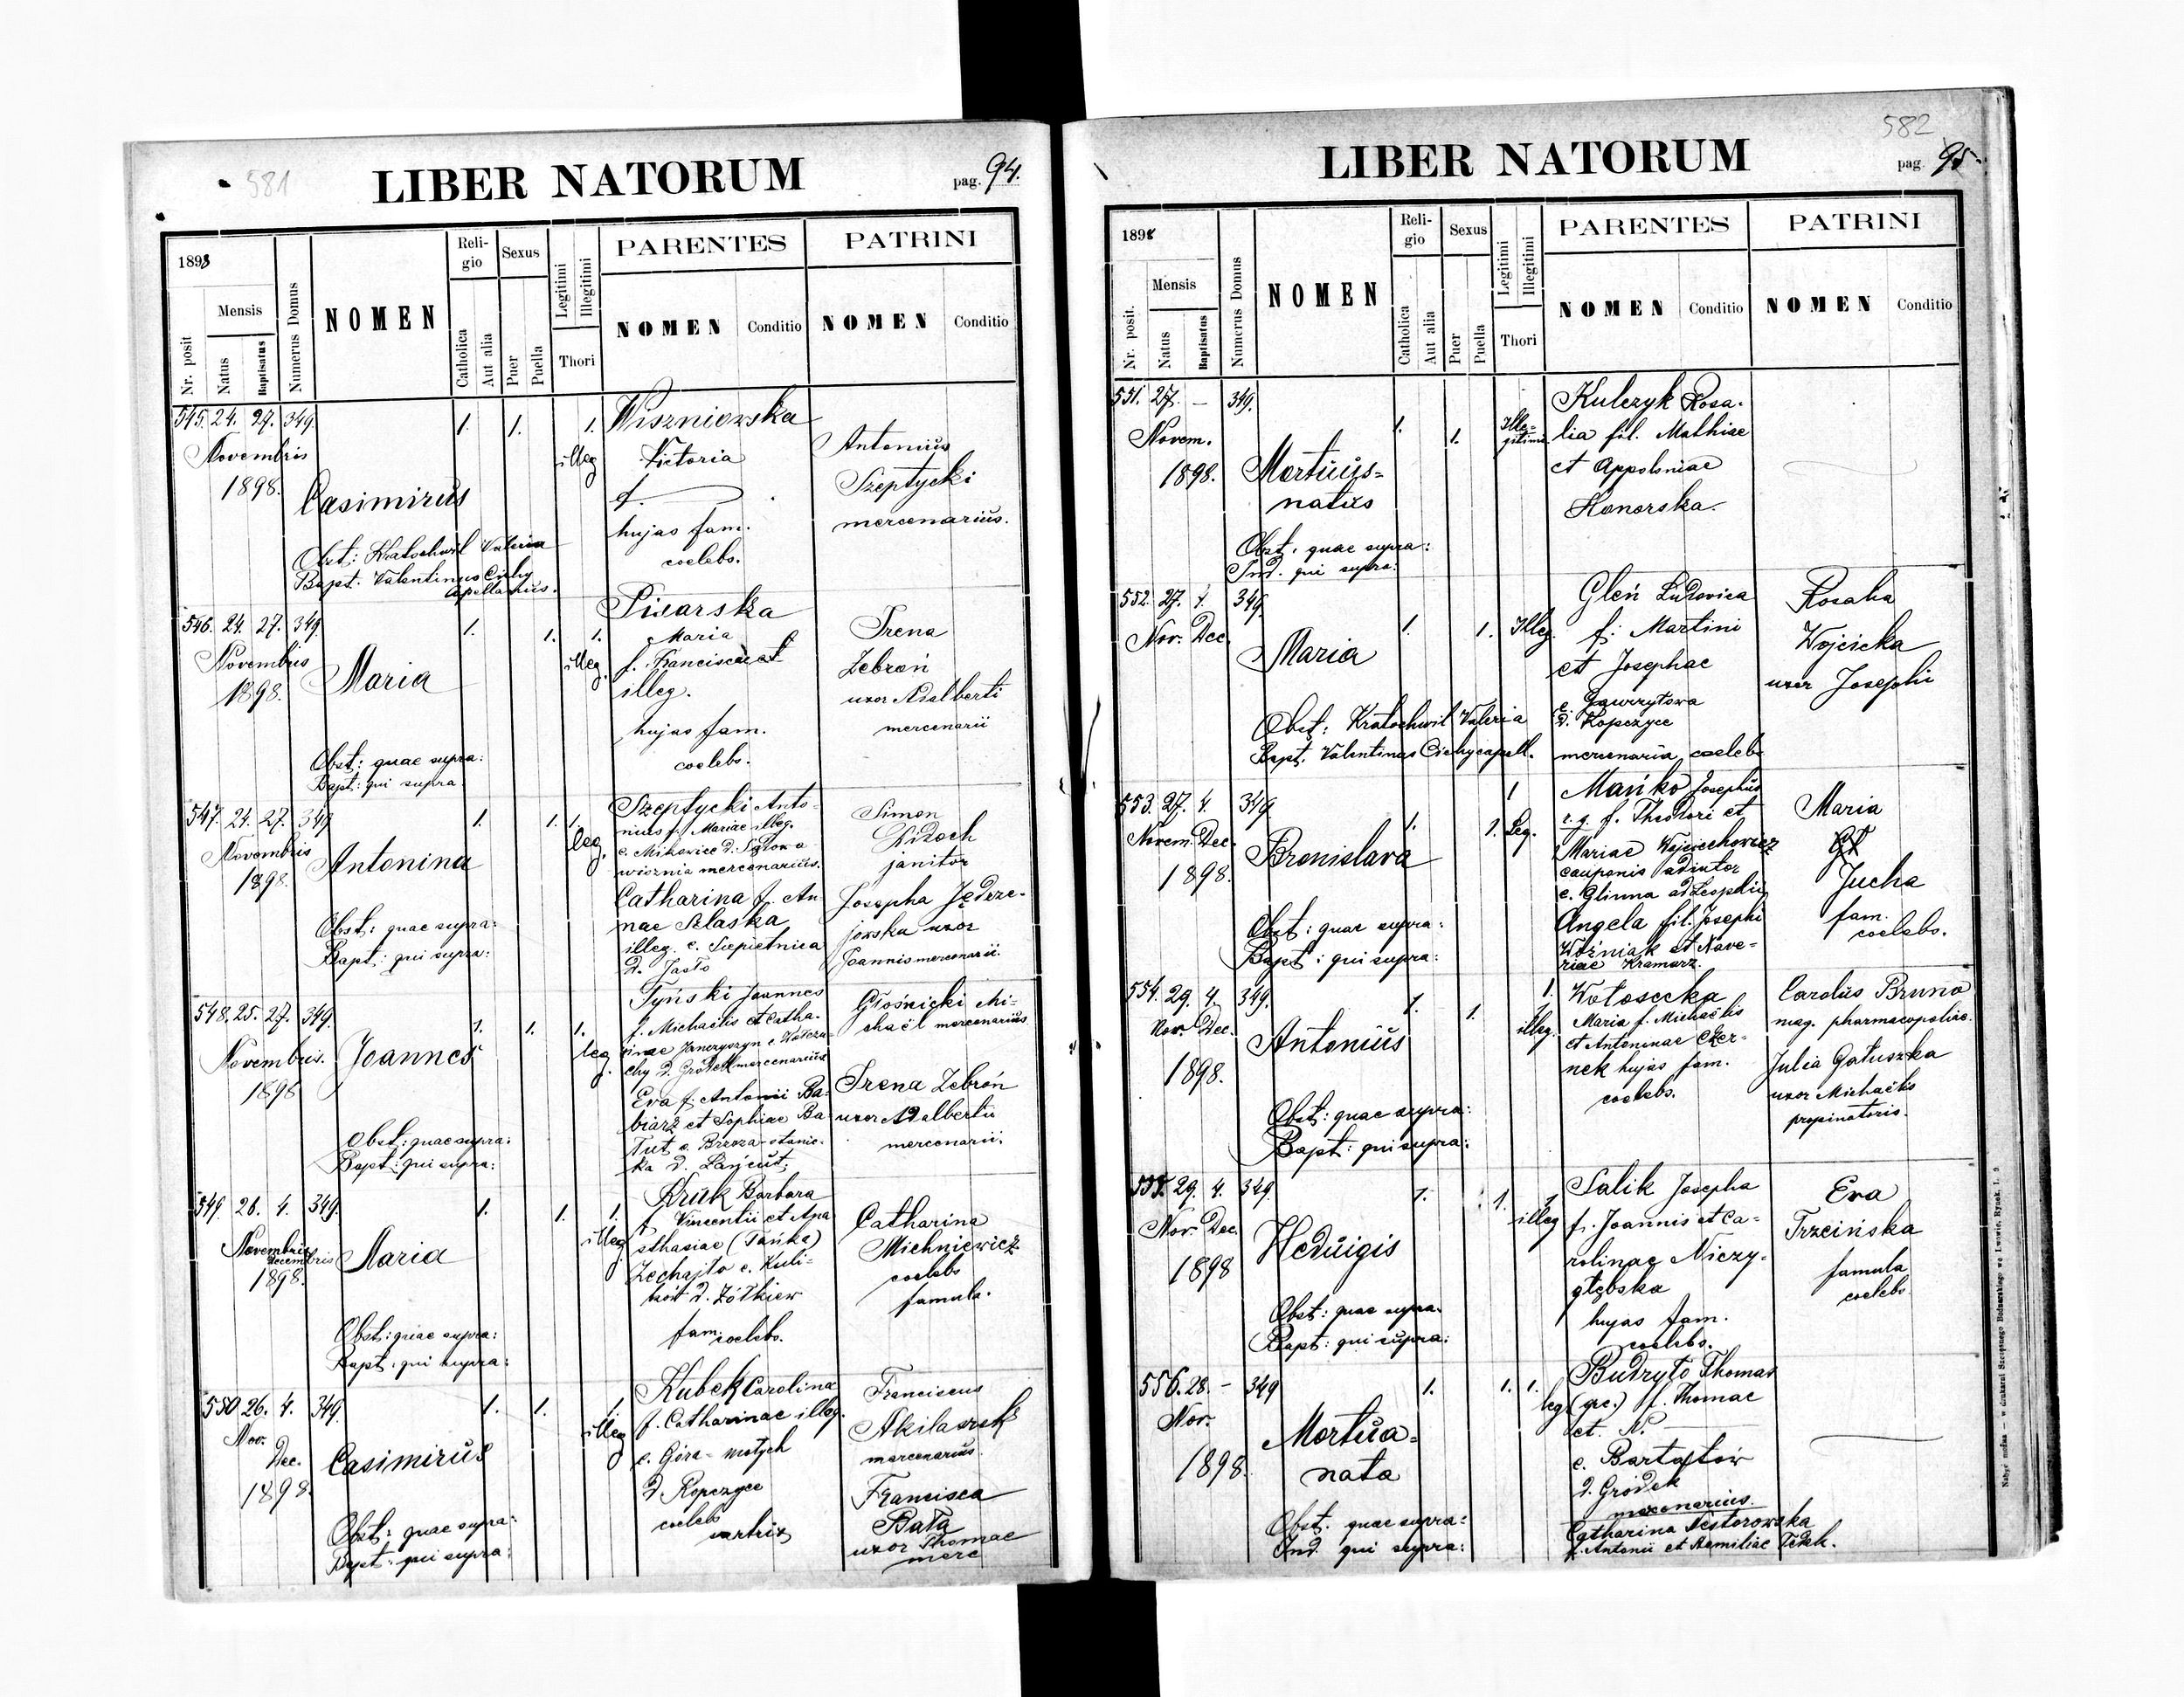 581
LIBER NATORUM
pag. 94.
1898
Nr. posit
Mensis
Natus
Baptisatus
Numerus Domus
NOMEN
Religio
Catholica
Aut alia
Sexus
Puer
Puella
Legitimi
Illegitimi
Thori
PARENTES
NOMEN
Conditio
PATRINI
NOMEN
Conditio
545. 24. 27. 349. 1. 1. 1.
Novembris
1898.
illeg
Casimirus
Obst: Kratochwil Valeria
Bapt. Valentinus Cichy
Capellanus.
Wiszniowska
Victoria
f.
hujas fam.
coelebs.
Antonius
Szeptycki
mercenarius.
546. 24. 27. 349. 1. 1. 1.
Novembris
1898.
illeg.
Maria
Obst: quae supra:
Bapt: qui supra
Pisarska
Maria
f. Franciscae et
illeg.
hujas fam.
coelebs.
Irena
Zebroń
uxor Adalberti
mercenarii
547. 24. 27. 349 1. 1. 1.
Novembris
1898.
leg.
Antonina
Obst: quae supra:
Bapt: qui supra:
Szeptycki Anto-
nius f. Mariae illeg.
wisznia mercenarius.
Catharina f. An-
nae Selaska
illeg. e. Siepietnica
d. Jasło
Simon
Didoch
janitor
Josepha Jędrze-
jowska uxor
Joannis mercenarii.
548. 25. 27. 349. 1. 1. 1.
Novembris.
1898
leg.
Joannes
Obst: quae supra:
Bapt: qui supra:
Tyński Joannes
f. Michaëlis et Catha-
rinae Janczyszyn e.
chy d. Gródek mercenarius
Eva f. Antonii Ba-
biarz et Sophiae Ba-
Tut e. Brzoza-stanic-
ka d. Łańcut.
Głośnicki Mi-
chaël mercenarius
Irena Zebroń
uxor Adalberti
mercenarii.
549. 28. 4. 349. 1. 1. 1.
Novembris
Decembris
1898.
illeg
Maria
Obst: quae supra:
Bapt: qui supra:
Kruk Barbara
f. Vincentii et Ana
sthasiae (Tańka)
Zechajlo e. Kuli-
d. Żółkiew
fam. coelebs.
Catharina
Michniewicz
coelebs
famula.
550 26. 4. 349. 1. 1. 1.
Nov.
Dec.
1898.
illeg
Casimirus
Obst: quae supra:
Bapt: qui supra:
Kubek Carolina
f. Catharinae illeg.
e. Góra-motych
d. Ropczyce
coelebs
sartrix
Franciscus
mercenarius.
Francisca
Bała
uxor Thomae
merc
582
LIBER NATORUM
pag. 95.
1898
Nr. posit.
Mensis
Natus
Baptisatus
Numerus Domus
NOMEN
Religio
Catholica
Aut alia
Sexus
Puer
Puella
Legitimi
Illegitimi
Thori
PARENTES
NOMEN
Conditio
PATRINI
NOMEN
Conditio
551. 27. — 349. 1. 1.
Novem.
1898.
Ille-
gitimi
Mortuus-
natus
Obst. quae supra:
Ind. qui supra:
Kulczyk Rosa-
lia fil. Mathiae
et Appoloniae
Honorska.
552. 27. 4. 349. 1. 1. Illeg.
Nov. Dec.
Maria
Obst: Kratochwil Valeria
Bapt. Valentinus Cichy capell.
Gleń Ludovica
f. Martini
et Josephae
e. Gawrzyłowa
d. Ropczyce
mercenaria coelebs
Rosalia
Wojcicka
uxor Josephi
553. 27. 4. 349 1. 1. 1
Leg.
Novem. Dec.
1898.
Bronislava
Obst: quae supra:
Bapt: qui supra:
Mańko Josephus
r. g. f. Theodori et
Mariae Wojciechowicz
cauponis adiutor
e. Glinna ad Leopolim
Angela fil. Josephi
Woźniak et Xave-
riae Kramarz.
Maria
Jucha
fam.
coelebs.
554. 29. 4. 349. 1. 1. 1.
Nov. Dec.
1898.
illeg.
Antonius
Obst: quae supra:
Bapt: qui supra:
Wołosecka
Maria f. Michaëlis
et Antoninae Czer-
nek hujas fam.
coelebs.
Carolus Bruno
mag. pharmacopoliae.
Julia Gałuszka
uxor Michaëlis
propinatoris.
555. 29. 4. 349 1. 1. 1
Nov. Dec.
1898
illeg
Heduigis
Obst: quae supra.
Bapt: qui supra:
Salik Josepha
f. Joannis et Ca-
rolinae Niczy-
głębska
hujas fam.
coelebs.
Eva
Trzcińska
famula
coelebs
556. 28. - 349 1. 1. 1.
Nov.
1898.
leg
Mortua-
nata
Obst. quae supra:
Ind. qui supra:
Budryło Thomas
(grc.) f. Thomae
et. N.
e. Bartatów
d. Gródek
mercenarius.
Catharina Nestorowska
f. Antonii et Aemiliae